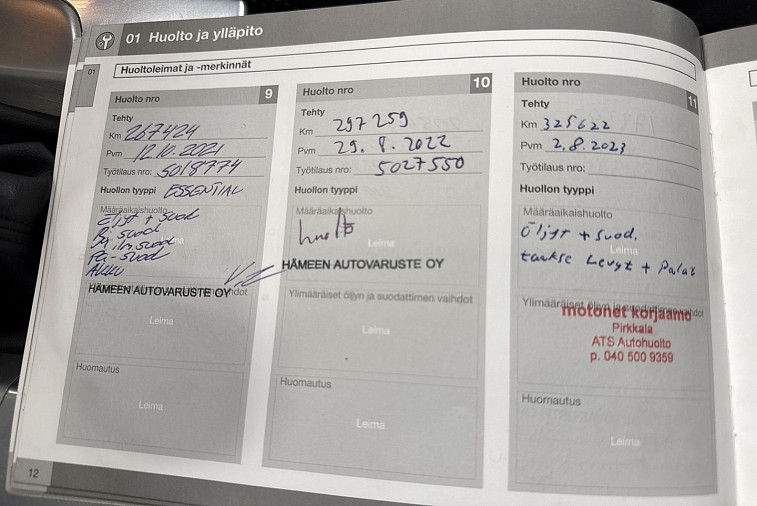 01 Huolto ja ylläpito
01
Huoltoleimat ja -merkinnät
Huolto nro 9
Tehty
Km 267424
Pvm 12.10.2021
Työtilaus nro: 5018774
Huollon tyyppi ESSENTIAL
Määräaikaishuolto
Öljyt + suod
Ri. suod
suod
suod
Akku
Leima
HÄMEEN AUTOVARUSTE OY
Leima
Huomautus
Leima
Huolto nro 10
Tehty
Km 297259
Pvm 29.8.2022
Työtilaus nro: 5027550
Huollon tyyppi
Määräaikaishuolto
huolto
Leima
HÄMEEN AUTOVARUSTE OY
Ylimääräiset öljyn ja suodattimen vaihdot
Leima
Huomautus
Leima
Huolto nro 11
Tehty
Km 325622
Pvm 2.8.2023
Työtilaus nro:
Huollon tyyppi
Määräaikaishuolto
Öljyt + suod.
Leima
taakse Levyt + Palat
Ylimääräiset öljyn ja suodattimen vaihdot
motonet korjaamo
Pirkkala
ATS Autohuolto
p. 040 500 9359
Huomautus
Leima
12